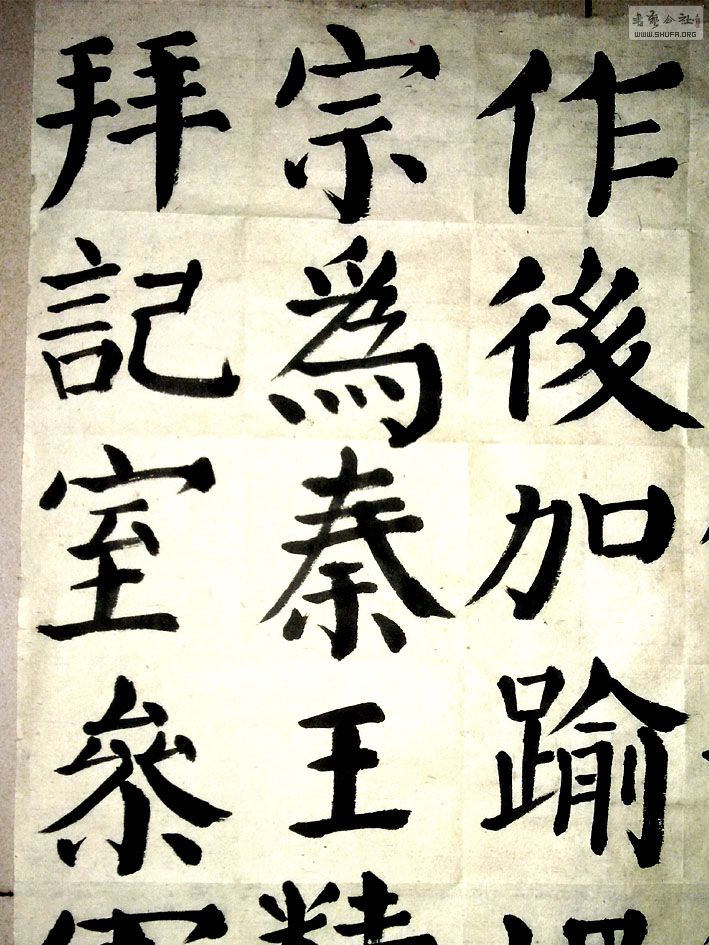 作後加踰
宗爲秦王精
拜記室參
書藝公社
WWW.SHUFA.ORG